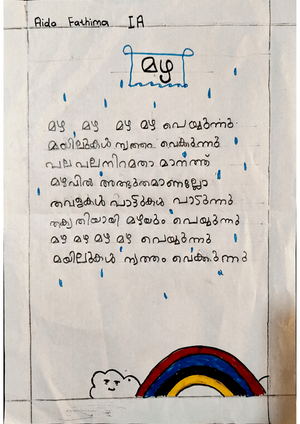 Aida Fathima IA
മഴ
മഴ മഴ മഴ മഴ പെയ്യുന്നു
മയിലുകൾ നൃത്തം വെക്കുന്നു
പല പല നിറമതാ മാനത്ത്
മഴവിൽ അത്ഭുതമാണല്ലോ
തവളകൾ പാട്ടുകൾ പാടുന്നു
തകൃതിയായി മഴയും പെയ്യുന്നു
മഴ മഴ മഴ മഴ പെയ്യുന്നു
മയിലുകൾ നൃത്തം വെക്കുന്നു